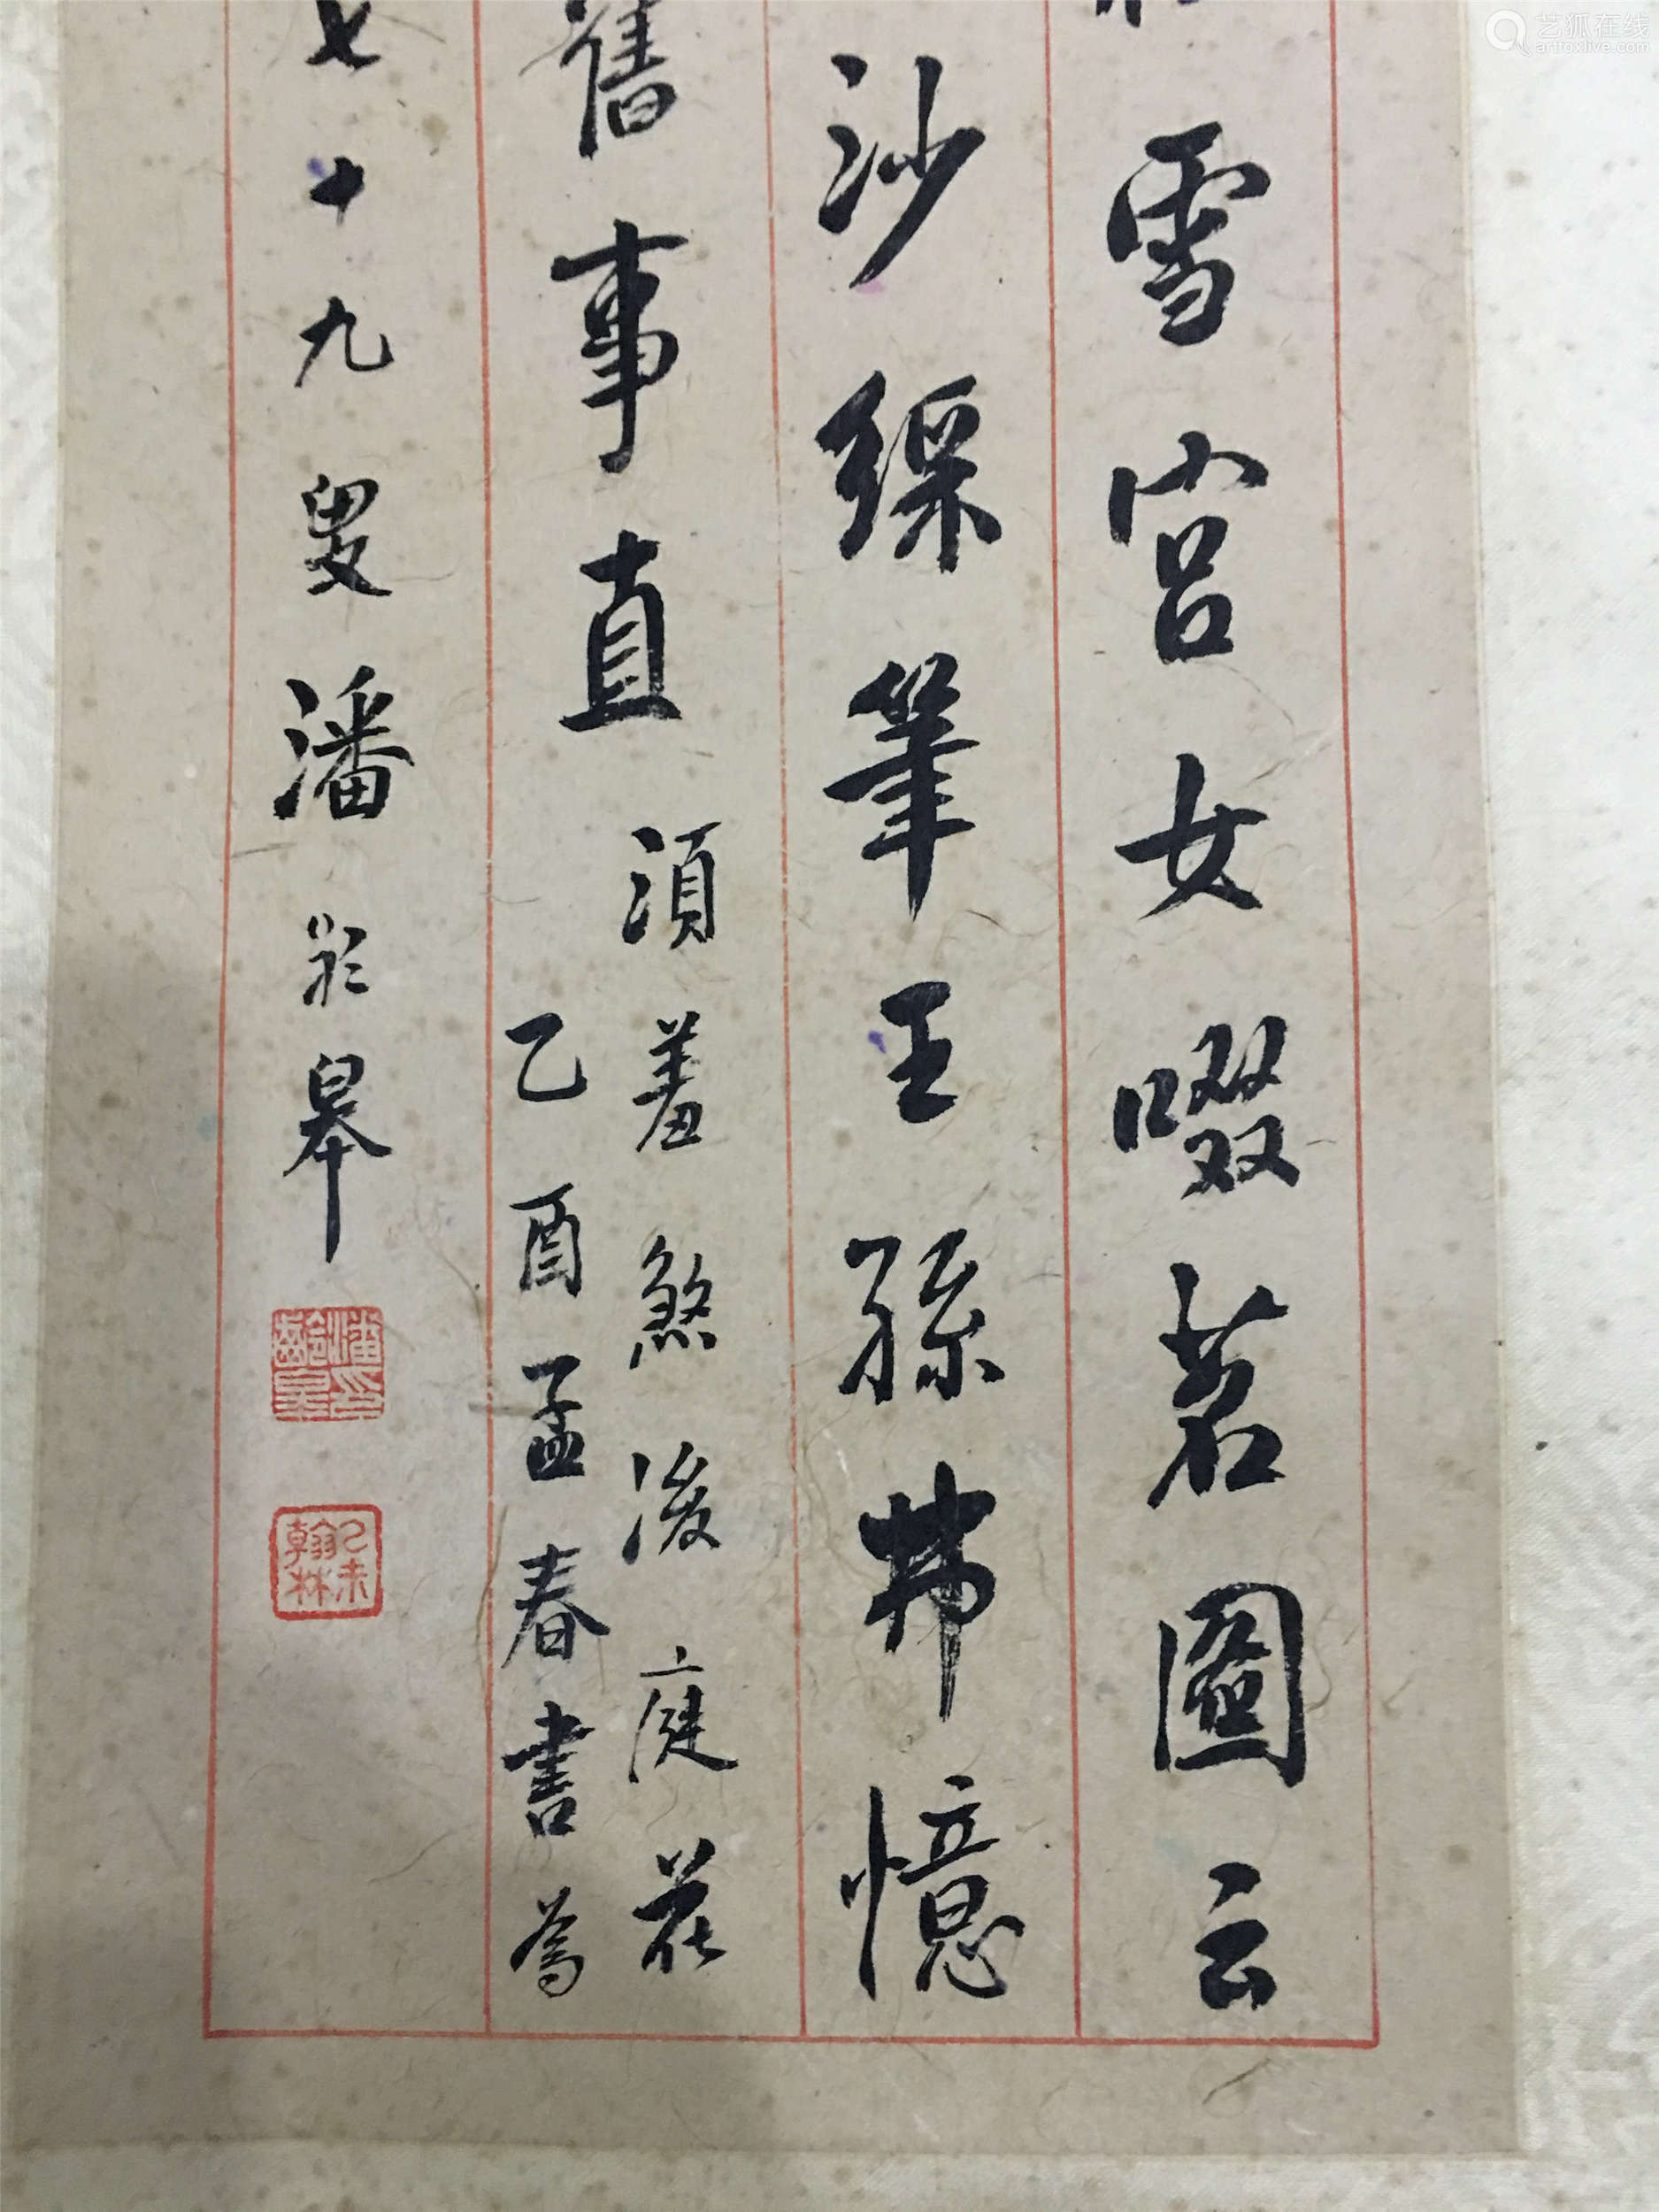 雪宮女啜茗圖云
沙綵筆王孫弗憶
舊事直
須羞煞後庭花
乙酉孟春書為
七十九叟潘齡皋
潘齡皋印
乙未翰林
艺狐在线
artfoxlive.com